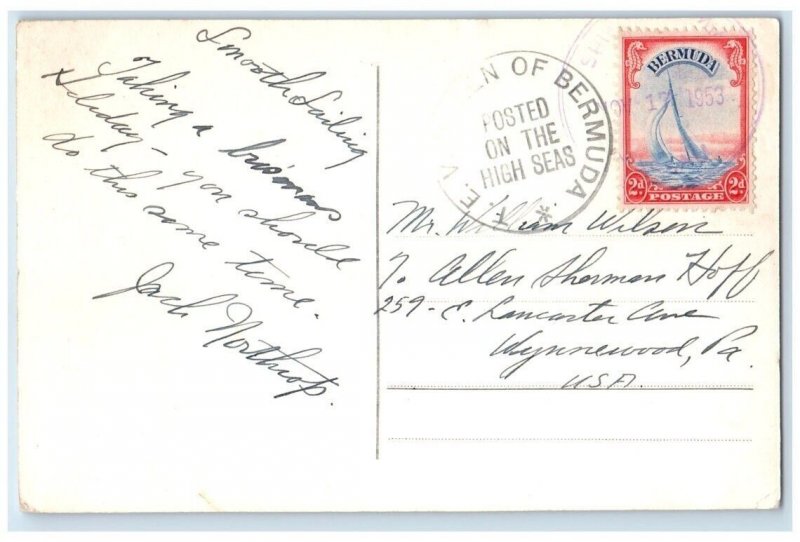 Smooth Sailing
Taking a business
Holiday - you should
do this some time.
Jack Northrop.
T.E.V. QUEEN OF BERMUDA *
POSTED
ON THE
HIGH SEAS
NOV 15 1953
BERMUDA
2d. 2d.
POSTAGE
Mr. William Wilson
℅ Allen Sherman Hoff
259 - E. Lancaster Ave
Wynnewood, Pa.
USA.